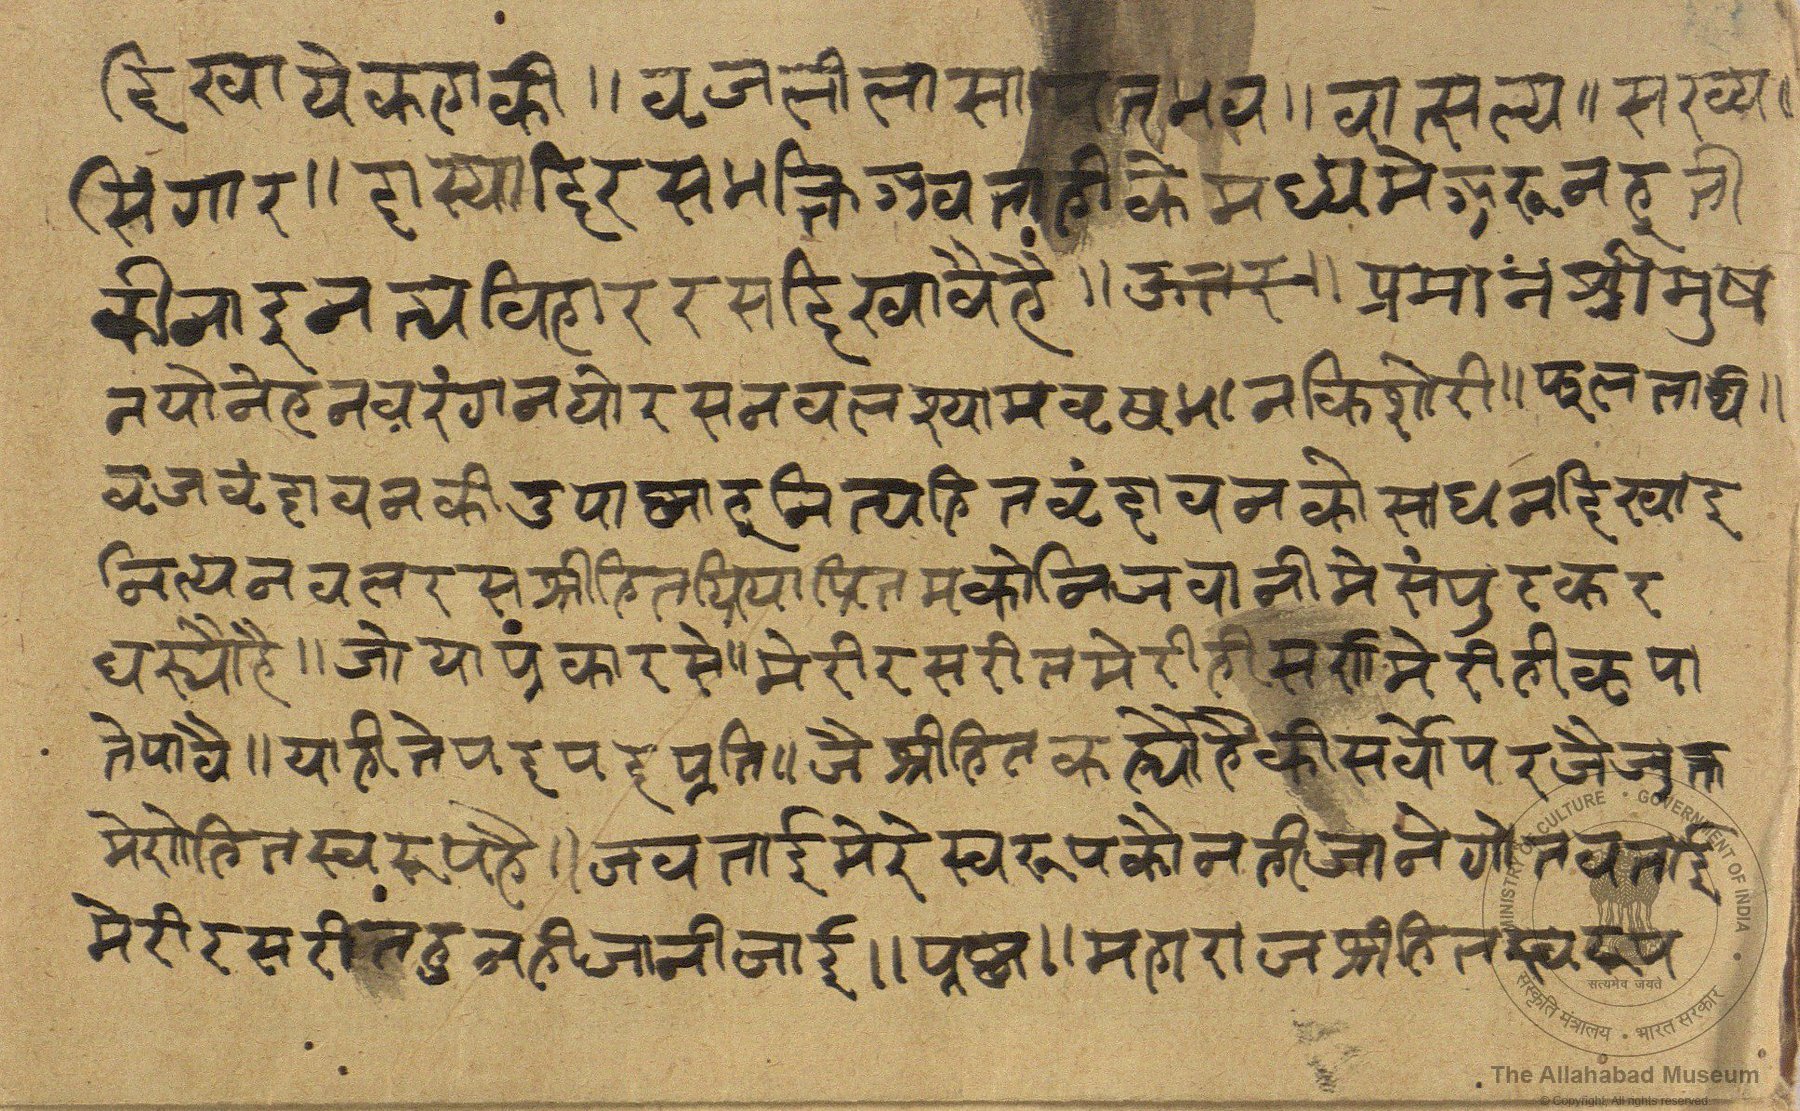 दिखाये कहा की ॥ व्रजलीला सा तनव ॥ वात्सल्य ॥ सख्य ॥
सिंगार ॥ दास्यादि रस भक्ति अव ताही के मध्य मे अरु नहू ती
की नाइ नत्य विहार रस दिखावै हैं ॥ प्रमान श्रीमुष
नयो नेह नव रंग नयो रस नवल श्याम वृषभान किशोरी ॥ फूलताई ॥
व्रज वृंदावन की उपास्ना हू नित्य हित वृंदावन को साधन दिखाइ
नित्य नवल रस श्रीहित प्रिया प्रितम को निज वानी मे संपुट कर
धर्यौ है ॥ जो या प्रकार से ॥ मेरी रस रीत मेरी ही सर्ण मेरी ही कृपा
ते पावै ॥ याही ते पद पद प्रति ॥ जै श्रीहित कह्यौ है की सर्वोपर जै जुक्त
मेरो हित स्वरूप है ॥ जव ताई मेरे स्वरूप कौ नही जानेगो तव ताई
मेरी रस रीत हु नही जानी जाई ॥ प्रष्ण ॥ महाराज श्रीहित स्वरूप
MINISTRY OF CULTURE • GOVERNMENT OF INDIA
सत्यमेव जयते
संस्कृति मंत्रालय • भारत सरकार
The Allahabad Museum
© Copyright, All rights reserved.